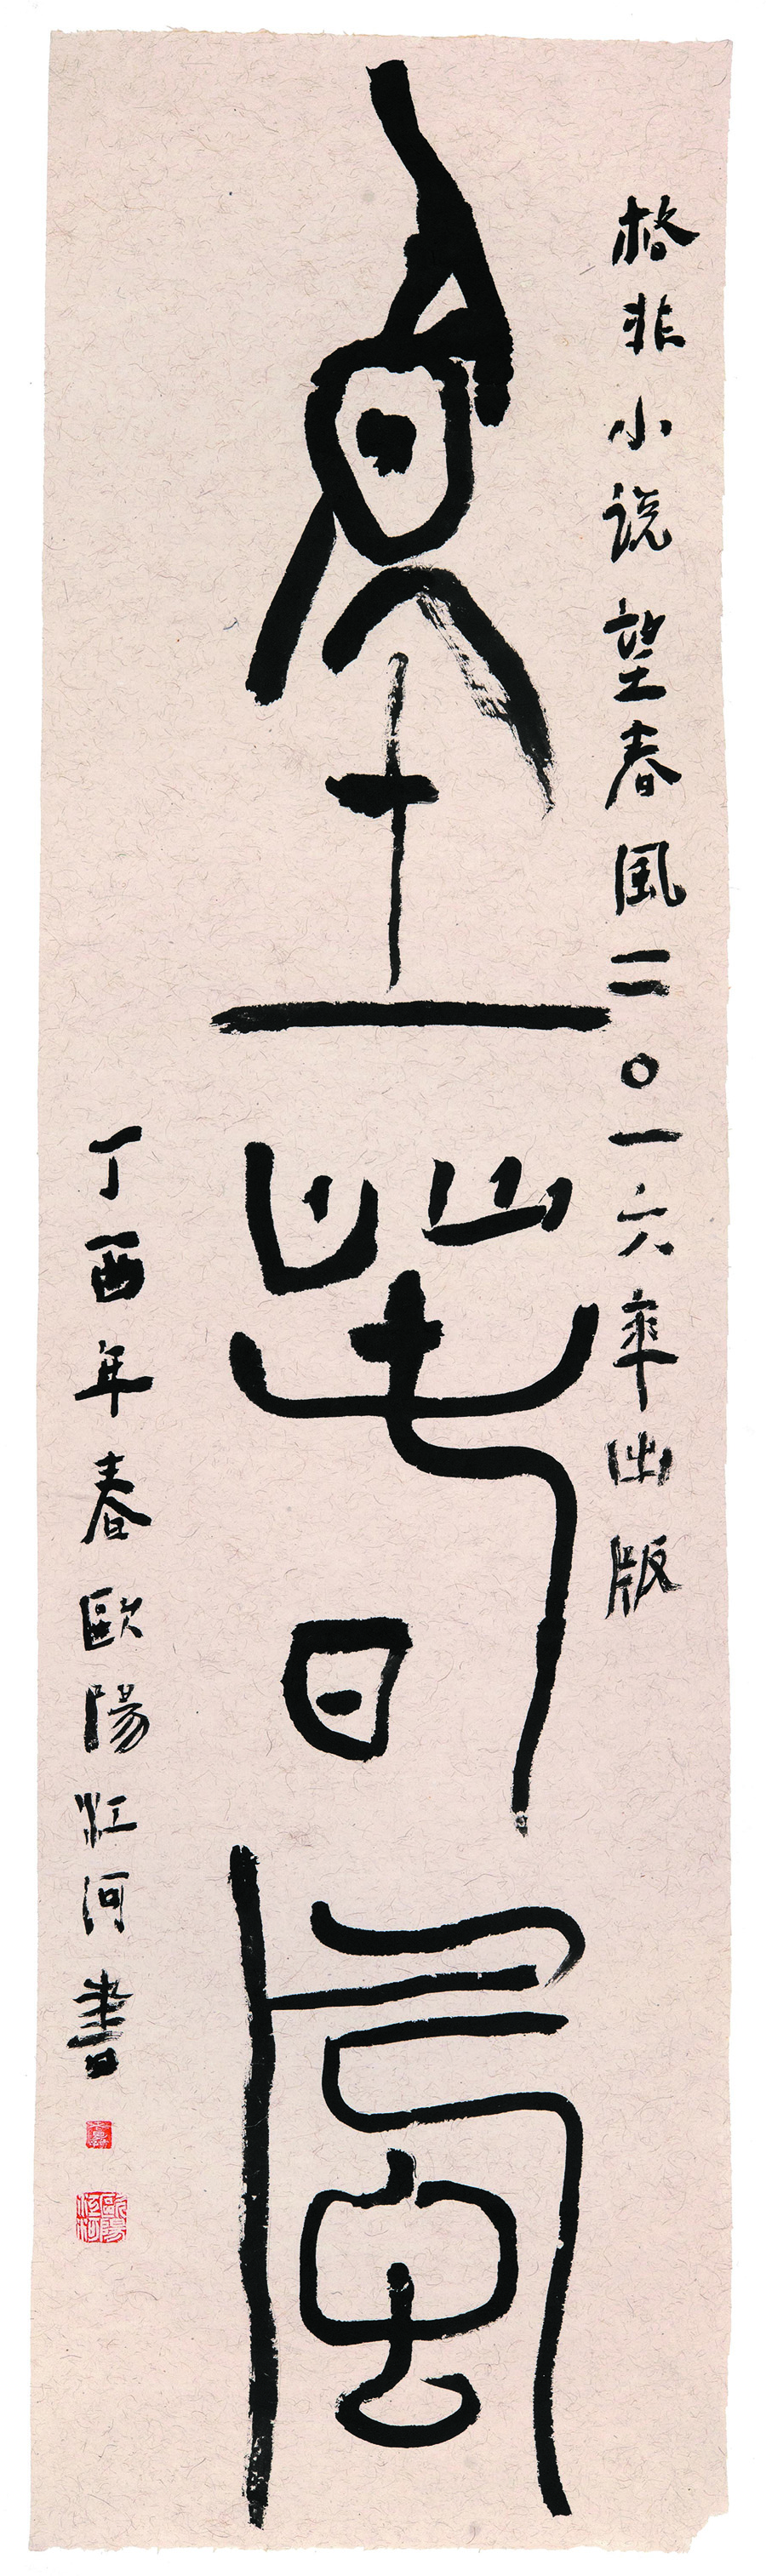 格非小说望春風二〇一六年出版
望春風
丁酉年春歐陽江河書
歐陽江河